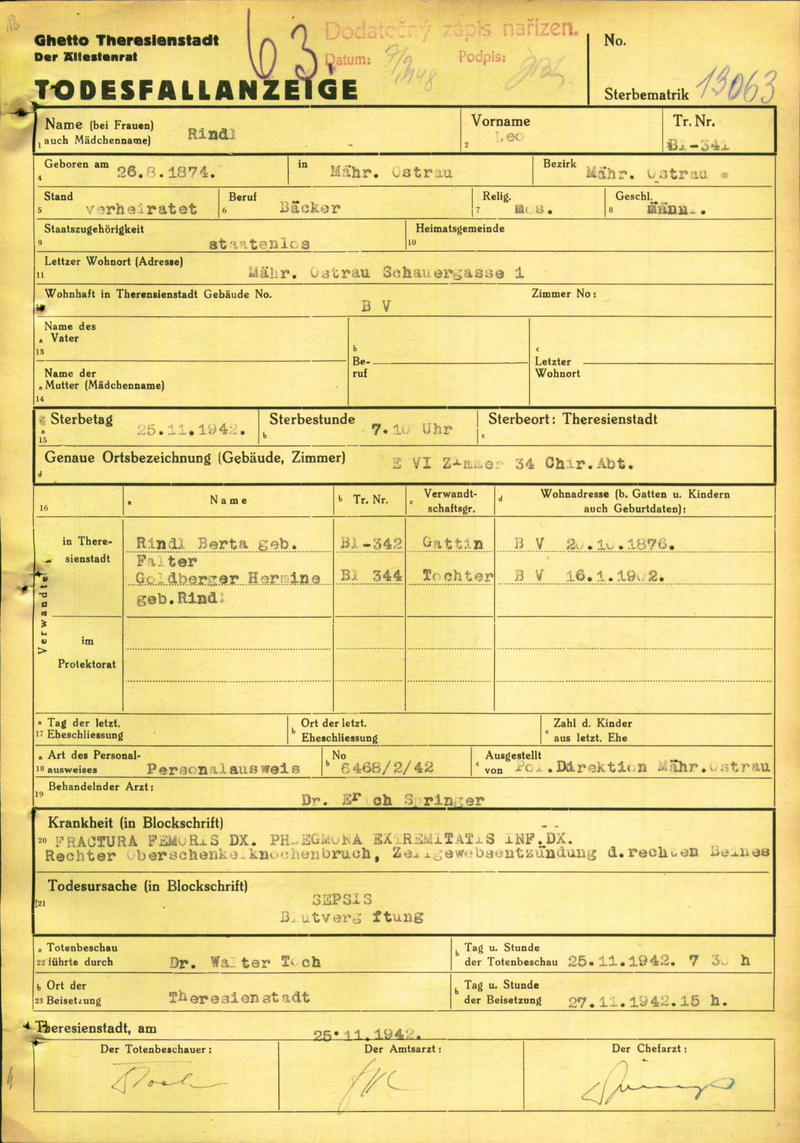 Ghetto Theresienstadt
Der Ältestenrat
TODESFALLANZEIGE
63
Dodatečný zápis nařízen.
Datum: 7/9 1948 Podpis:
No.
Sterbematrik 13063
Name (bei Frauen) auch Mädchenname) Rindl
1
Vorname Leo
2
Tr. Nr. Bi-341
Geboren am 26.8.1874. in Mähr. Ostrau Bezirk Mähr. Ostrau
4
Stand verheiratet Beruf Bäcker Relig. mos. Geschl. Männ.
5 6 7 8
Staatszugehörigkeit staatenlos Heimatsgemeinde
9 10
Lettzer Wohnort (Adresse)
11 Mähr. Ostrau Schauergasse 1
Wohnhaft in Therensienstadt Gebäude No. B V Zimmer No:
Name des
a Vater
13
b Be-ruf
c Letzter Wohnort
Name der
a Mutter (Mädchenname)
14
Sterbetag 25.11.1942. Sterbestunde 7.10 Uhr Sterbeort: Theresienstadt
a 15 b c
Genaue Ortsbezeichnung (Gebäude, Zimmer) E VI Zimmer 34 Chir.Abt.
d
16 a Name b Tr. Nr. c Verwandt-schaftsgr. d Wohnadresse (b. Gatten u. Kindern auch Geburtdaten):
Verwandte
in There-sienstadt
Rindl Berta geb. Bi-342 Gattin B V 20.10.1876.
Falter
Goldberger Hermine Bi 344 Tochter B V 16.1.1902.
geb.Rindl
im Protektorat
a Tag der letzt. b Ort der letzt. Zahl d. Kinder
17 Eheschliessung Eheschliessung c aus letzt. Ehe
a Art des Personal- b No c Ausgestellt
18 ausweises Personalausweis 6468/2/42 von Pol.Direktion Mähr.Ostrau
19 Behandelnder Arzt:
Dr. Erich Springer
Krankheit (in Blockschrift)
20 FRACTURA FEMORIS DX. PHLEGMONA EXTREMITATIS INF.DX.
Rechter Oberschenkelknochenbruch, Zellgewebsentzündung d.rechten Beines
Todesursache (in Blockschrift)
21 SEPSIS
Blutvergiftung
a Totenbeschau b Tag u. Stunde
22 führte durch Dr. Walter Toch der Totenbeschau 25.11.1942. 7 30 h
b Ort der b Tag u. Stunde
23 Beisetzung Theresienstadt der Beisetzung 27.11.1942.15 h.
Theresienstadt, am 25.11.1942.
Der Totenbeschauer: Der Amtsarzt: Der Chefarzt: